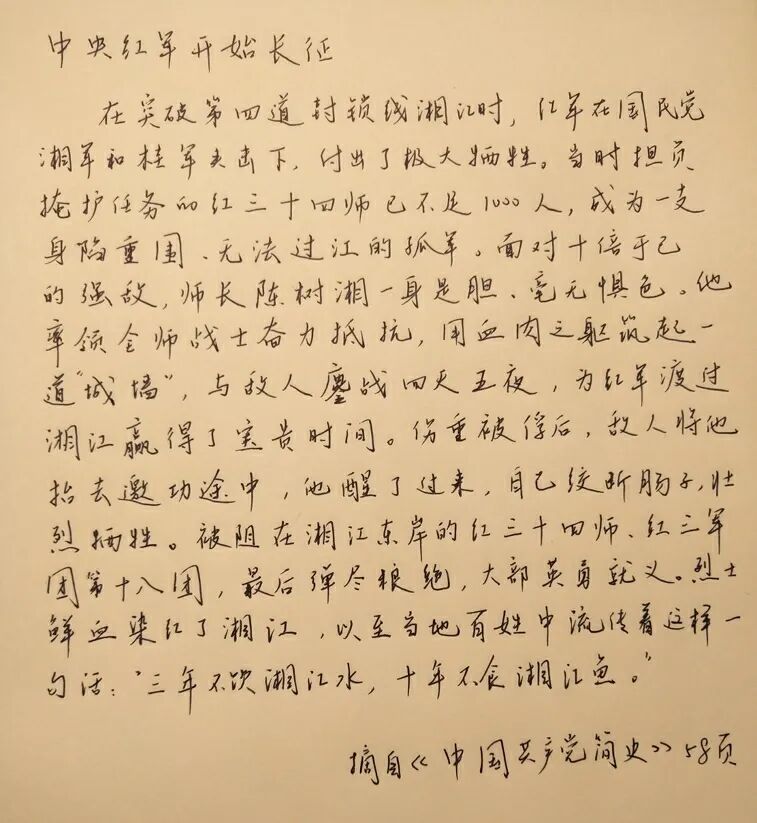 中央红军开始长征
在突破第四道封锁线湘江时，红军在国民党
湘军和桂军夹击下，付出了极大牺牲。当时担负
掩护任务的红三十四师已不足1000人，成为一支
身陷重围、无法过江的孤军。面对十倍于己
的强敌，师长陈树湘一身是胆、毫无惧色。他
率领全师战士奋力抵抗，用血肉之躯筑起一
道“城墙”，与敌人鏖战四天五夜，为红军渡过
湘江赢得了宝贵时间。伤重被俘后，敌人将他
抬去邀功途中，他醒了过来，自己绞断肠子，壮
烈牺牲。被阻在湘江东岸的红三十四师、红三军
团第十八团，最后弹尽粮绝，大部英勇就义。烈士
鲜血染红了湘江，以至当地百姓中流传着这样一
句话：“三年不饮湘江水，十年不食湘江鱼。”
摘自《中国共产党简史》58页